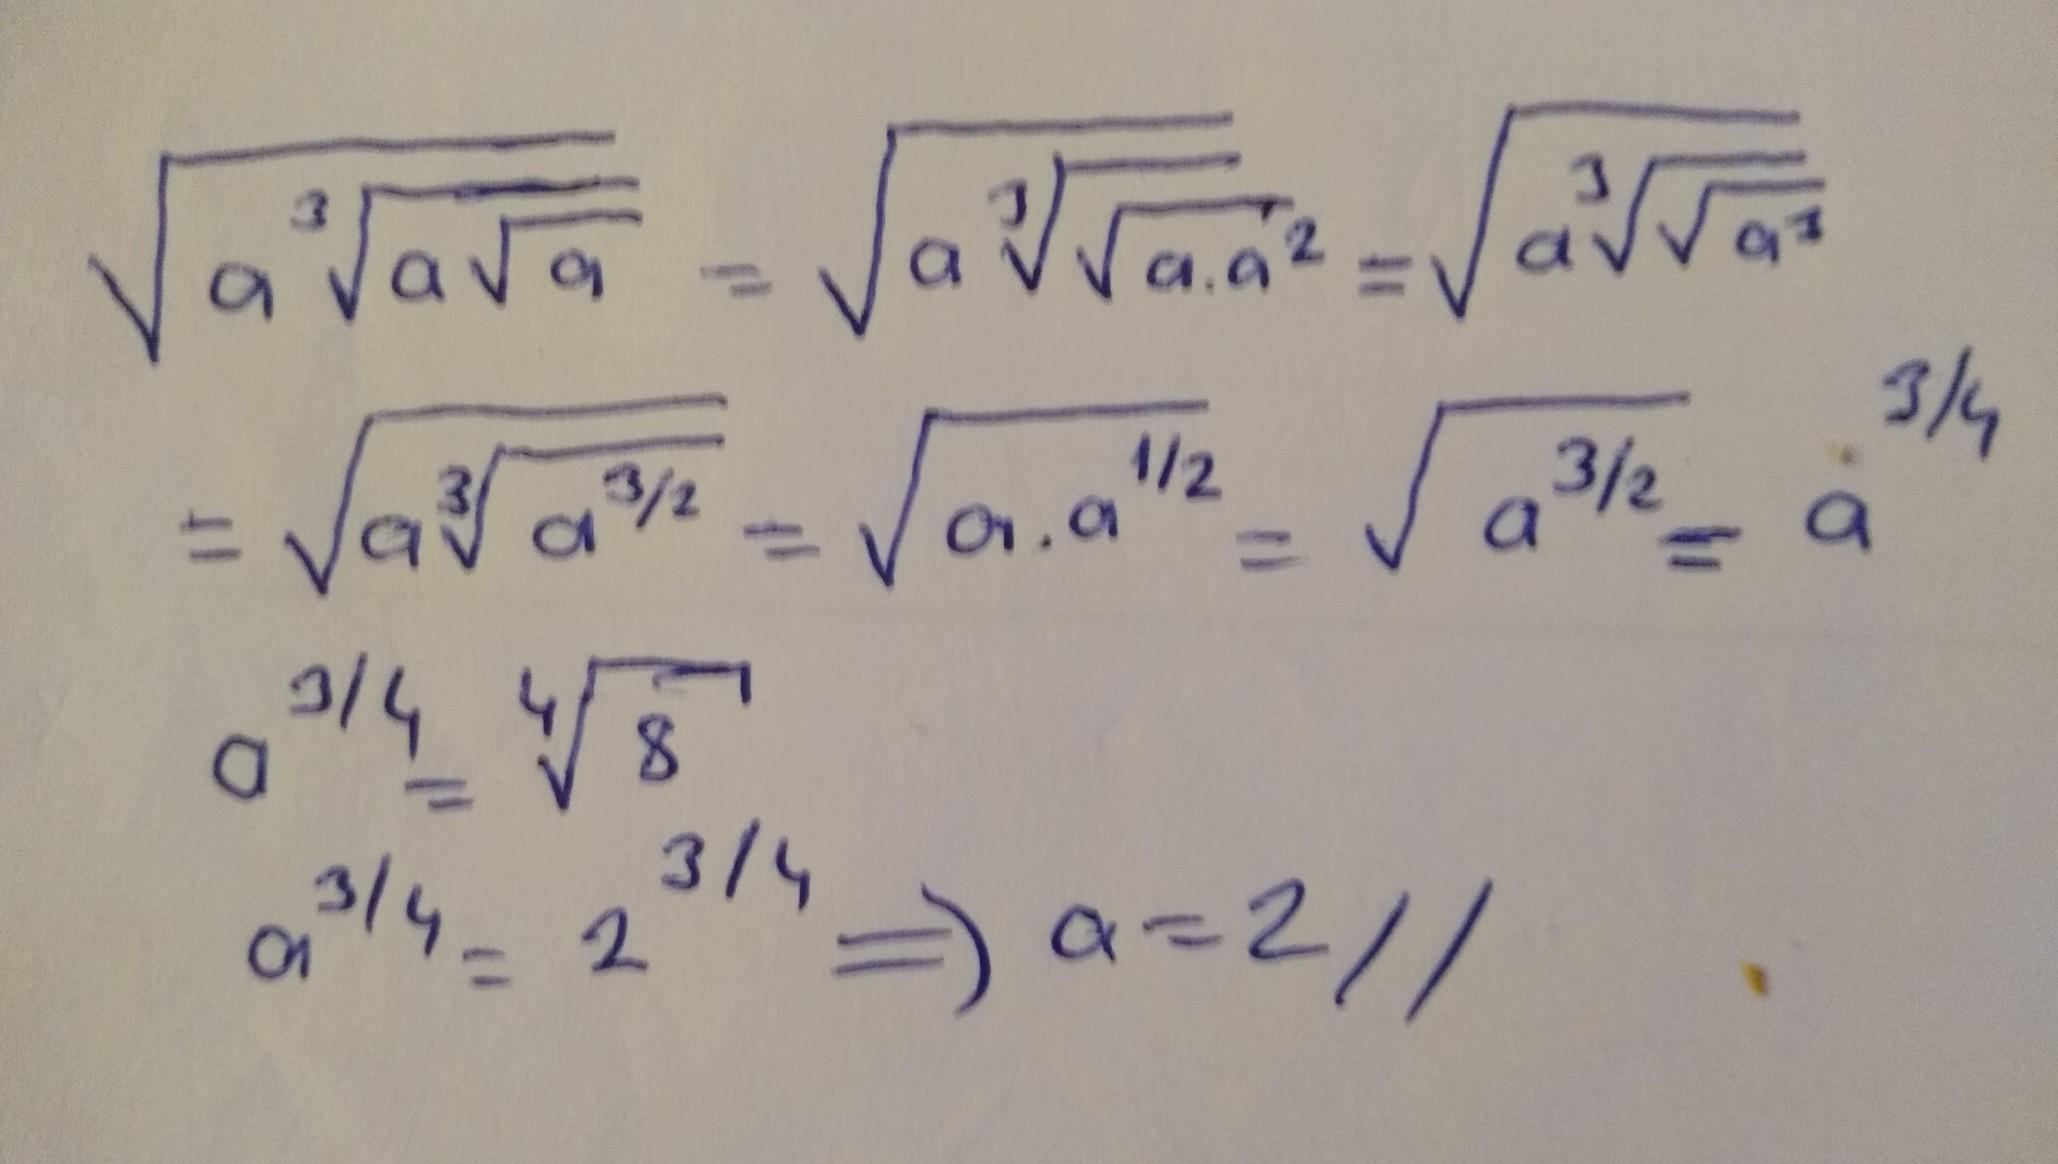 √(a ∛(a √a)) = √(a ∛(√(a.a²))) = √(a ∛(√(a³)))
= √(a ∛(a^(3/2))) = √(a.a^(1/2)) = √(a^(3/2)) = a^(3/4)
a^(3/4) = ∜8
a^(3/4) = 2^(3/4) ⇒ a = 2 //